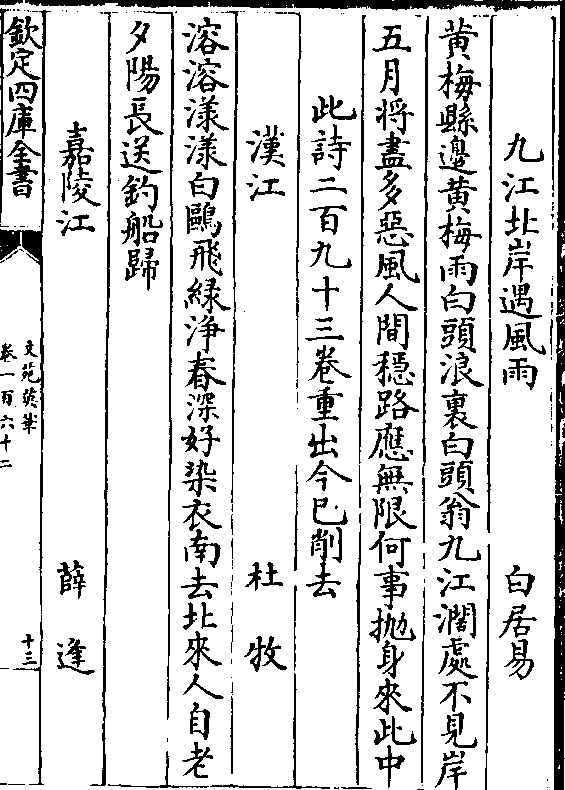 九江北岸遇風雨 白居易
黄梅縣邊黄梅雨白頭浪裏白頭翁九江濶處不見岸
五月將盡多惡風人間穩路應無限何事抛身來此中
此詩二百九十三卷重出今已削去
漢江 杜牧
溶溶漾漾白鷗飛緑浄春深好染衣南去北來人自老
夕陽長送釣船歸
嘉陵江 薛逢
欽定四庫全書
文苑英華
卷一百六十二
十三